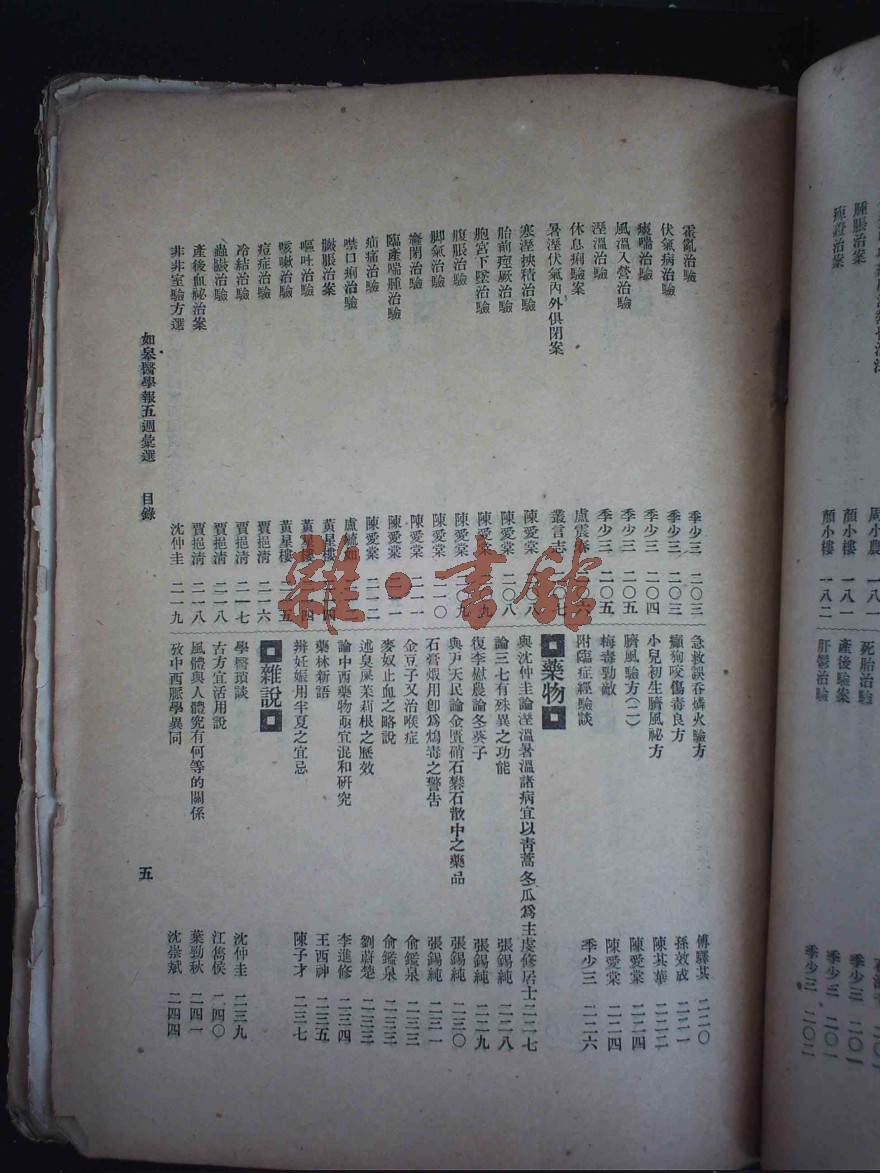 腫脹治案 顏小樓 一八一
痙證治案 顏小樓 一八二
死胎治驗 季少三 二〇一
產後驗案 季少三 二〇一
肝鬱治驗 季少三 二〇二
霍亂治驗 季少三 二〇三
伏氣病治驗 季少三 二〇三
痰喘治驗 季少三 二〇四
風溫入營治驗 季少三 二〇五
溼溫治驗 季少三 二〇五
休息痢驗案 盧震 二〇六
暑溼伏氣內外俱閉案 叢言志 二〇七
寒溼挾積治驗 陳愛棠 二〇八
胎前痙厥治驗 陳愛棠 二〇八
胞宮下墜治驗 陳愛棠 二〇九
腹脹治驗 陳愛棠 二〇九
脚氣治驗 陳愛棠 二一〇
癃閉治驗 陳愛棠 二一一
臨產喘腫治驗 陳愛棠 二一一
疝痛治驗 陳愛棠 二一二
噤口痢治驗 盧毓如
臌脹治案 黃星樓 二一四
嘔吐治驗 黃星樓 二一四
咳嗽治驗 黃星樓 二一五
痘症治驗 賈挹清 二一六
冷結治驗 賈挹清 二一七
蟲鼓治驗 賈挹清 二一八
產後血祕治案 賈挹清 二一八
非非室驗方選 沈仲圭 二一九
急救誤吞燐火驗方 傅驥其 二二〇
癲狗咬傷毒良方 孫效成 二二一
小兒初生臍風祕方 陳其華 二二二
臍風驗方(二) 陳愛棠 二二四
梅毒勁敵 陳愛棠 二二四
附臨症經驗談 季少三 二二六
藥物
與沈仲圭論溼溫暑溫諸病宜以青蒿冬瓜爲主 虔修居士 二二七
論三七有殊異之功能 張錫純 二二八
復李慰農論冬葵子 張錫純 二二九
與尹天民論金匱硝石礬石散中之藥品 張錫純 二三〇
石膏煅用卽爲鴆毒之警告 張錫純 二三一
金豆子又治喉症 俞鑑泉 二三三
麥奴止血之略說 俞鑑泉 二三三
述臭屎茉莉根之歷效 劉蔚楚 二三三
論中西藥物亟宜混和研究 李進修 二三四
藥林新語 王西神 二三五
辨妊娠用半夏之宜忌 陳子才 二三七
雜說
學醫瑣談 沈仲圭 二三九
古方宜活用說 江雋侯 二四〇
風體與人體究有何等的關係 葉勁秋 二四一
攷中西脈學異同 沈崇斌 二四四
如皋醫學報五週彙選 目錄 五
雜·書館